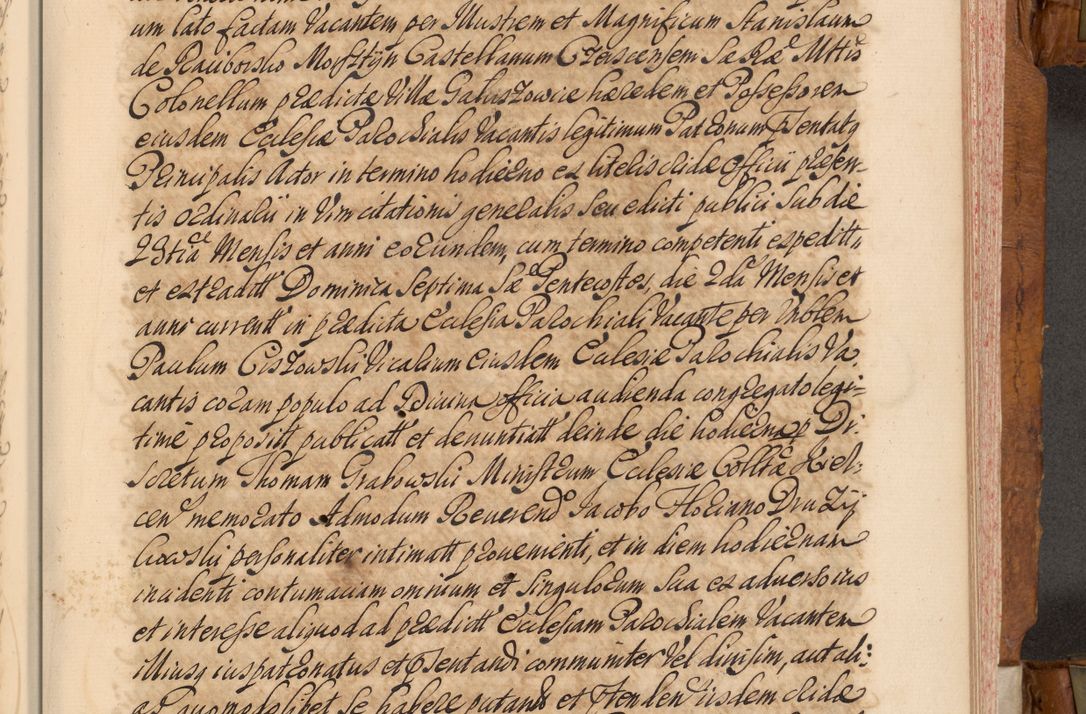 um lato factam Vacantem per Illustrem et Magnificum Stanislaum
de Raciborsko Morsztyn Castellanum Czerscensem Sæ Ræ Mttis
Colonellum prædictæ Villæ Galuszowice hæredem et Possessorem
eiusdem Ecclesiæ Parochialis Vacantis legitimum Patronum pñtatq
Principalis Actor in termino hodierno ex literis eiusdæ officii præsen-
tis ordinarii in Vim citationis generalis seu edicti publici sub die
23tia Mensis et anni eorundem, cum termino competenti expeditt,
et extraditt Dominica Septima Sæ Pentecostes, die 2da Mensis et
anni currentt in prædicta Ecclesia Parochiali Vacante per Vnblem
Paulum Ciszowski Vicarium eiusdem Ecclesiæ Parochialis Va
cantis coram populo ad Divina officia audienda congregato legi-
time proposit publicatt et denuntiatt deinde die hodierna p Di-
scretum Thomam Grabowski Ministrum Ecclesiæ Colltæ Kiel-
cen memorato Admodum Reuerendo Jacobo Floriano Druzy
kowski personaliter intimatt prouenienti, et in diem hodiernam
incidenti contumaciam omnium et singulorum sua ex aduerso ius
et interesse aliquod ad prædictt Ecclesiam Parochialem Vacantem
Illiusq iuspatronatus et pñtandi communiter Vel diuisim, aut ali-
as quomodolibet se habere putand et